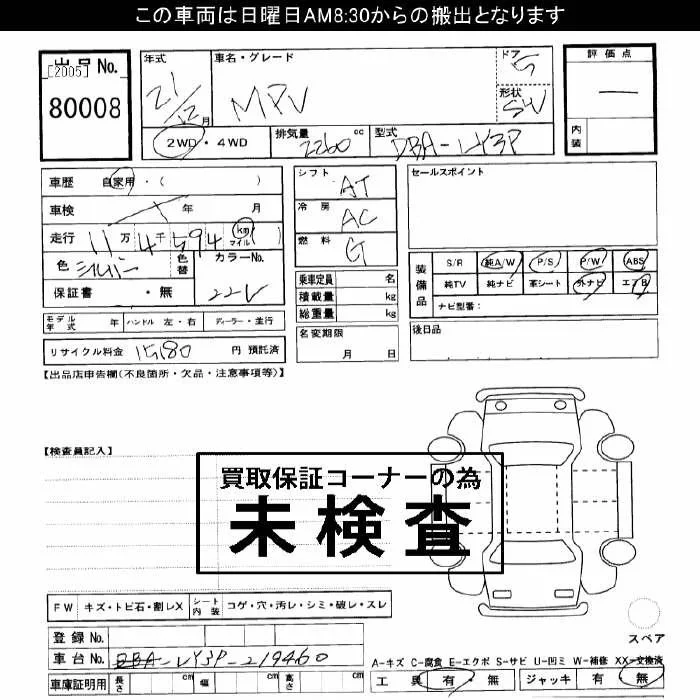 この車両は日曜日AM8:30からの搬出となります
出品No.
[2005]
80008
年式
21/12月
車名・グレード
MPV
ドア
5
形状
SW
2WD・4WD
排気量
2260 cc
型式
DBA-LY3P
評価点
—
内装
車歴 自家用・( )
車検 年 月
走行 11万4千594 km マイル
色 シルバー
色替
カラーNo.
22V
保証書 ・無
モデル年式 年 ハンドル 左・右 ディーラー・並行
リサイクル料金 15180 円 預託済
シフト AT
冷房 AC
燃料 G
乗車定員 名
積載量 kg
総重量 kg
名変期限
月 日
セールスポイント
装備品
S/R 純A/W P/S P/W ABS
純TV 純ナビ 革シート 外ナビ エアB
ナビ型番:
後日品
【出品店申告欄(不良箇所・欠品・注意事項等)】
【検査員記入】
買取保証コーナーの為
未検査
FW キズ・トビ石・割レX シート内装 コゲ・穴・汚レ・シミ・破レ・スレ
登録No.
車台No. DBA-LY3P-219460
車庫証明用 長さ cm 幅 cm 高さ cm
スペア
A-キズ C-腐食 E-エクボ S-サビ U-凹ミ W-補修 XX-交換済
工具 有・無 ジャッキ 有・無